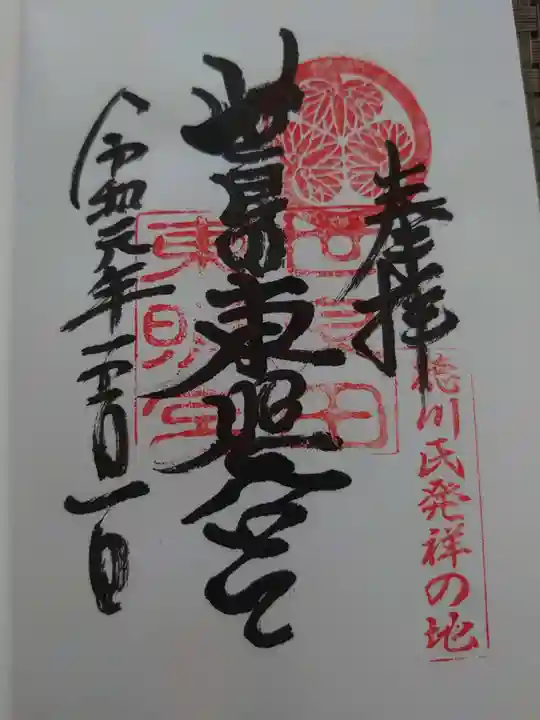 奉拝
徳川氏発祥の地
世良田東照宮
世良田
東照宮
令和元年十一月一日